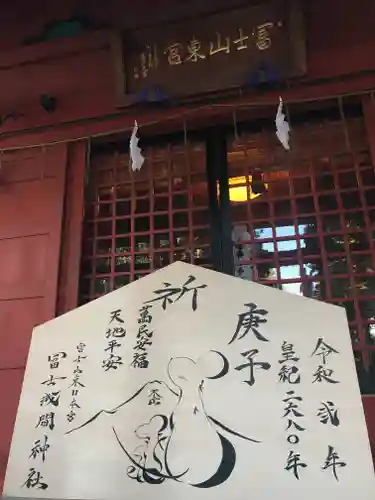 冨士山東宮
令和弐年
皇紀二六八〇年
庚子
祈
萬民安福
天地平安
冨士山東口本宮
冨士浅間神社